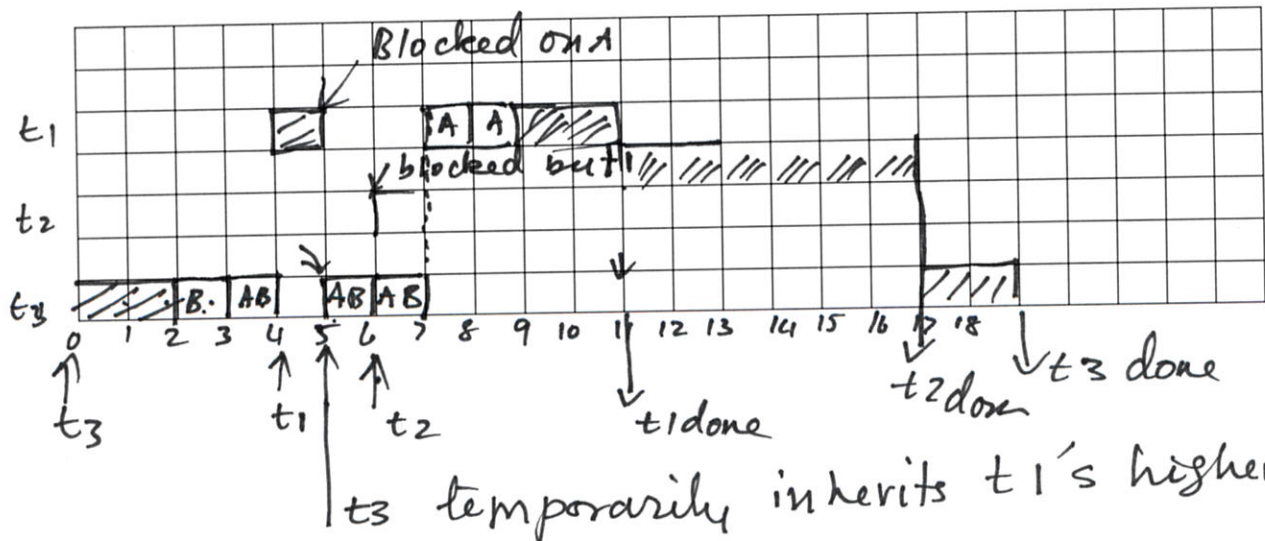 Blocked on A
t1 A A
blocked but
t2
t3 B. AB AB AB
0 1 2 3 4 5 6 7 8 9 10 11 12 13 14 15 16 17 18
t3 t1 t2 t1 done t2 done t3 done
t3 temporarily inherits t1's higher